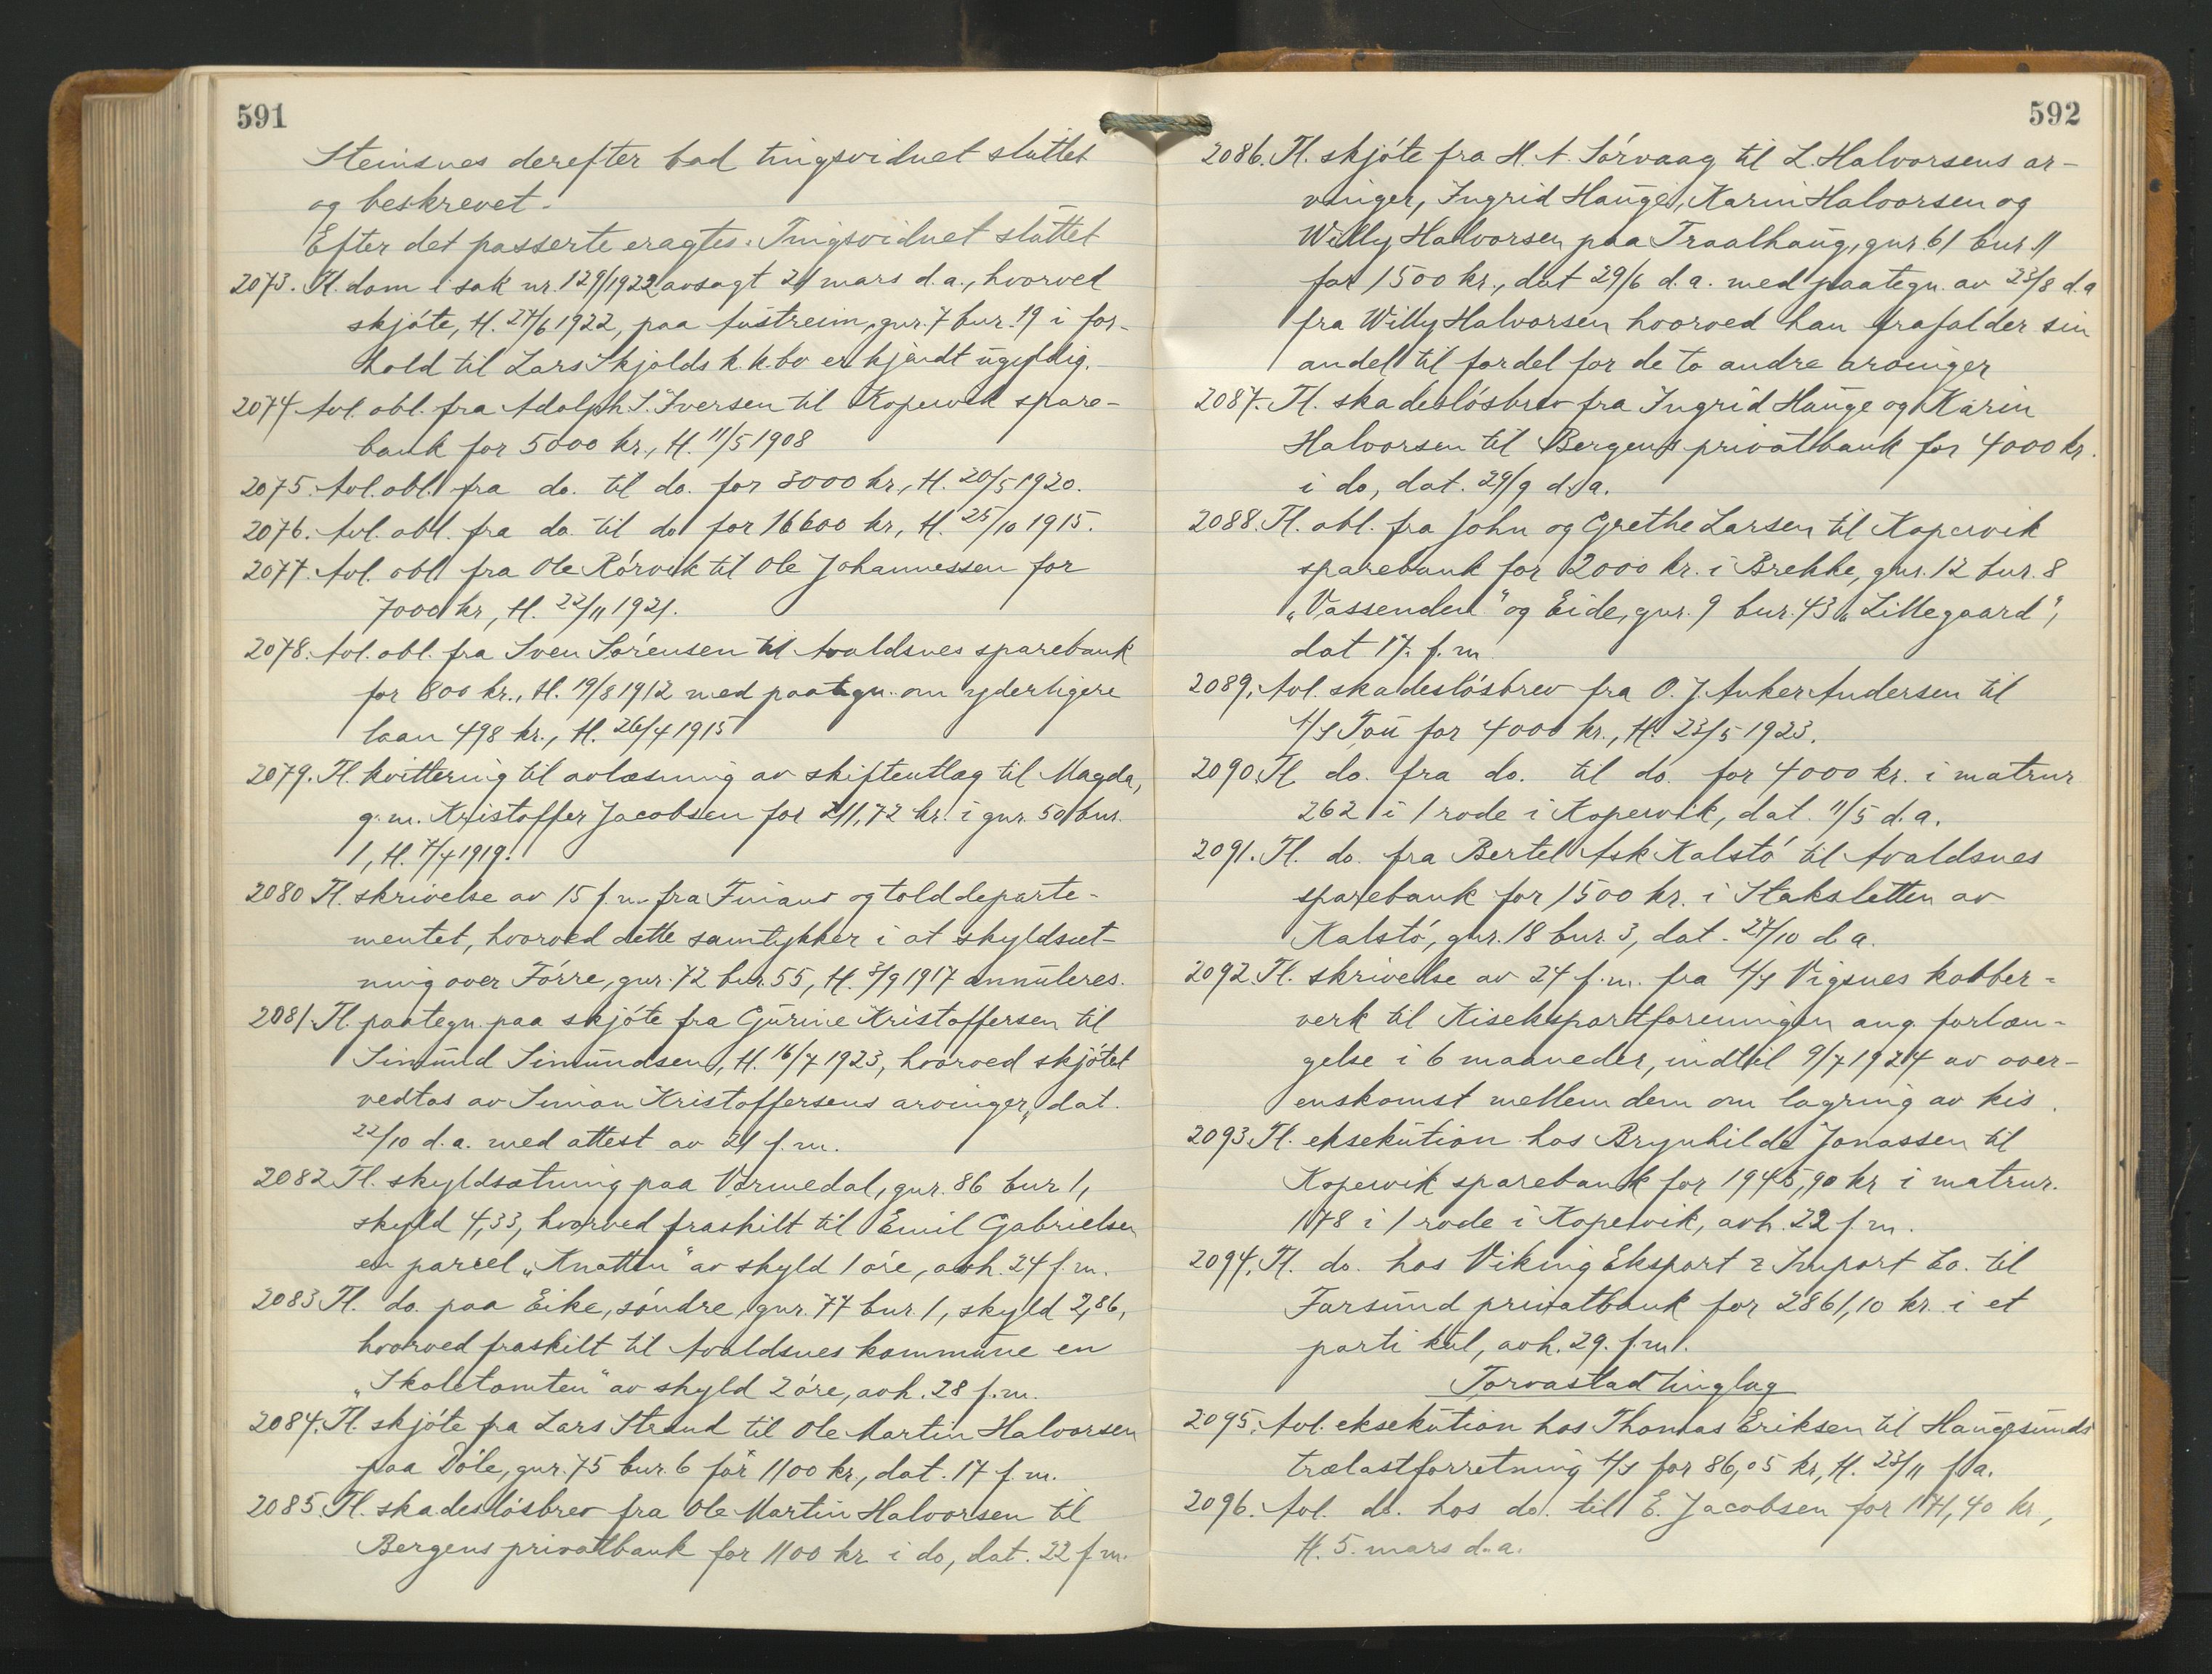 591
Steinsnes derefter bad tingsvidnet sluttet
og beskrevet.
Efter det passerte eragtes: Tingsvidnet sluttet
2073. Tl. dom i sak nr. 129/1922 avsagt 21 mars d.a., hvorved
skjöte, tl. 27/6 1922, paa Austreim, gnr. 7 bnr. 19 i for-
hold til Lars Skjolds k.k.bo er kjendt ugyldig.
2074 Avl. obl. fra Adolph S. Iversen til Kopervik spare-
bank for 5000 kr., tl. 11/5 1908
2075. Avl. obl. fra do. til do. for 3000 kr, tl. 20/5 1920.
2076. Avl. obl. fra do til do for 16600 kr, tl. 25/10 1915.
2077. Avl. obl fra Ole Rörvik til Ole Johannessen for
7000 kr, tl. 22/11 1921.
2078. Avl. obl. fra Sven Sörensen til Avaldsnes sparebank
for 800 kr., tl. 19/8 1912 med paategn. om yderligere
laan 498 kr., tl. 26/4 1915
2079. Tl. kvittering til avlæsning av skifteutlæg til Magda,
g.m. Kristoffer Jacobsen for 211,72 kr. i gnr. 50 bnr.
1, tl. 7/4 1919.
2080 Tl. skrivelse av 15 f.m. fra Finans og tolddeparte-
mentet, hvorved dette samtykker i at skyldsæt-
ning over Förre, gnr. 72 bnr. 55, tl. 3/9 1917 annuleres.
2081. Tl. paategn. paa skjöte fra Gurine Kristoffersen til
Simund Simundsen, tl. 16/7 1923, hvorved skjötet
vedtas av Simon Kristoffersens arvinger, dat.
22/10 d.a. med attest av 21 f.m.
2082 Tl. skyldsætning paa Vormedal, gnr. 86 bnr 1,
skyld 4,33, hvorved fraskilt til Emil Gabrielsen
en parcel „Knatten" av skyld 1 öre, avh. 24 f.m.
2083 Tl. do. paa Eike, söndre, gnr. 77 bnr. 1, skyld 2,86,
hvorved fraskilt til Avaldsnes kommune en
„Skoletomten" av skyld 2 öre, avh. 28 f.m.
2084. Tl. skjöte fra Lars Strand til Ole Martin Halvorsen
paa Döle, gnr. 75 bnr. 6 for 1100 kr, dat. 17 f.m.
2085. Tl. skadeslösbrev fra Ole Martin Halvorsen til
Bergens privatbank for 1100 kr i do, dat. 22 f.m.
592
2086. Tl. skjöte fra H. A. Sörvaag til L. Halvorsens ar-
vinger, Ingrid Hauge, Karin Halvorsen og
Willy Halvorsen paa Traalhaug, gnr. 61 bnr. 11
for 1500 kr., dat 29/6 d.a. med paategn. av 23/8 d.a
fra Willy Halvorsen hvorved han frafalder sin
andel til fordel for de to andre arvinger
2087. Tl. skadeslösbrev fra Ingrid Hauge og Karin
Halvorsen til Bergens privatbank for 4000 kr.
i do, dat. 29/9 d.a.
2088. Tl. obl. fra John og Grethe Larsen til Kopervik
sparebank for 2000 kr. i Brekke, gnr. 12 bnr. 8
„Vassenden" og Eide, gnr. 9 bnr. 43 „Lillegaard",
dat 17. f.m
2089. Avl. skadeslösbrev fra O. J. Anker Andersen til
A/S Tou for 4000 kr., tl. 23/5 1923.
2090. Tl do. fra do. til do. for 4000 kr. i matrnr
262 i 1 rode i Kopervik, dat. 11/5 d.a.
2091. Tl. do. fra Bertel Ask Kalstö til Avaldsnes
sparebank for 1500 kr. i Staksletten av
Kalstö, gnr. 18 bnr. 3, dat. 27/10 d a.
2092. Tl. skrivelse av 24 f.m. fra A/S Vigsnes kobber-
verk til Kiseksportforeningen ang. forlæn-
gelse i 6 maaneder, indtil 9/7 1924 av over-
enskomst mellem dem om lagring av kis.
2093. Tl. eksekution hos Brynhilde Jonassen til
Kopervik sparebank for 1945,90 kr i matrnr.
178 i 1 rode i Kopervik, avh. 22 f.m.
2094. Tl. do. hos Viking Eksport & Import Co. til
Farsund privatbank for 2861,10 kr. i et
parti kul, avh. 29. f.m.
Torvastad tinglag
2095. Avl. eksekution hos Thomas Eriksen til Haugesunds
trælastforretning A/S for 86,05 kr, tl. 23/11 f.a.
2096. Avl. do. hos do. til E. Jacobsen for 171,40 kr.,
tl. 5. mars d.a.